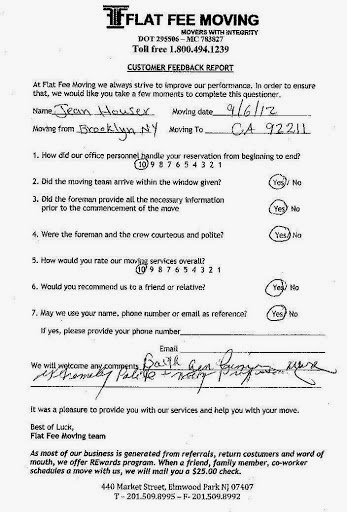 FLAT FEE MOVING
MOVERS WITH INTEGRITY
DOT 295506 - MC 783827
Toll free 1.800.494.1239
CUSTOMER FEEDBACK REPORT
At Flat Fee Moving we always strive to improve our performance. In order to ensure
that, we would like you take a few moments to complete this questioner.
Name Jean Houser Moving date 9/6/12
Moving from Brooklyn NY Moving To CA 92211
1. How did our office personnel handle your reservation from beginning to end?
10 9 8 7 6 5 4 3 2 1
2. Did the moving team arrive within the window given? Yes/ No
3. Did the foreman provide all the necessary information
prior to the commencement of the move Yes/ No
4. Were the foreman and the crew courteous and polite? Yes/ No
5. How would you rate our moving services overall?
10 9 8 7 6 5 4 3 2 1
6. Would you recommend us to a friend or relative? Yes/ No
7. May we use your name, phone number or email as reference? Yes/ No
If yes, please provide your phone number
Email
We will welcome any comments
extremely Polite + very Professional
It was a pleasure to provide you with our services and help you with your move.
Best of Luck,
Flat Fee Moving team
As most of our business is generated from referrals, return costumers and word of
mouth, we offer REwards program. When a friend, family member, co-worker
schedules a move with us, we will mail you a $25.00 check.
440 Market Street, Elmwood Park NJ 07407
T - 201.509.8995 - F- 201.509.8992